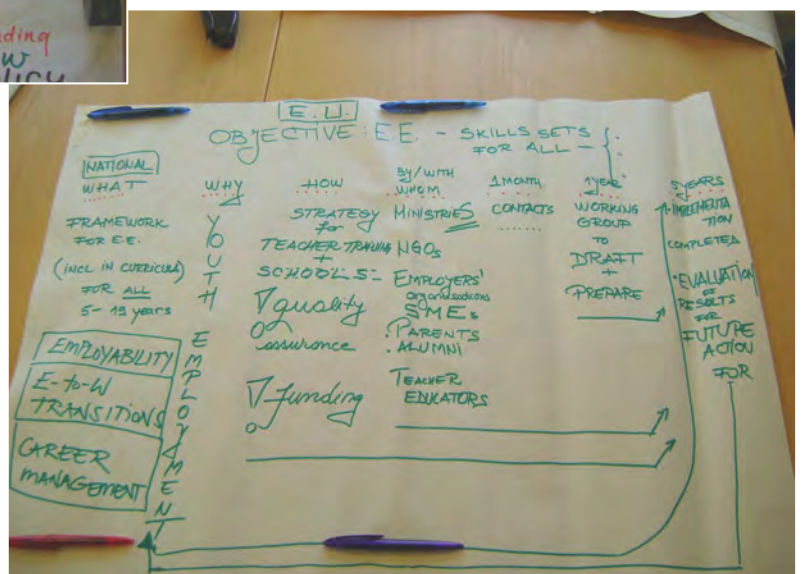 ding
W
POLICY
E.U.
OBJECTIVE: E.E. - SKILLS SETS
FOR ALL -
NATIONAL
WHAT
FRAMEWORK
FOR E.E.
(INCL IN CURRICULA)
FOR ALL
5-19 years
EMPLOYABILITY
E-to-W
TRANSITIONS
CAREER
MANAGEMENT
WHY
YOUTH
EMPLOYMENT
HOW
STRATEGY
for
TEACHER TRAINING
+
SCHOOLS -
quality
assurance
funding
BY/WITH
WHOM
MINISTRIES
NGOs
EMPLOYERS'
organisations
SMEs
.PARENTS
.ALUMNI
TEACHER
EDUCATORS
1 MONTH
CONTACTS
1 YEAR
WORKING
GROUP
TO
DRAFT
+
PREPARE
5 YEARS
.IMPLEMENTA
TION
COMPLETED
.EVALUATION
OF
RESULTS
FOR
FUTURE
ACTION
FOR